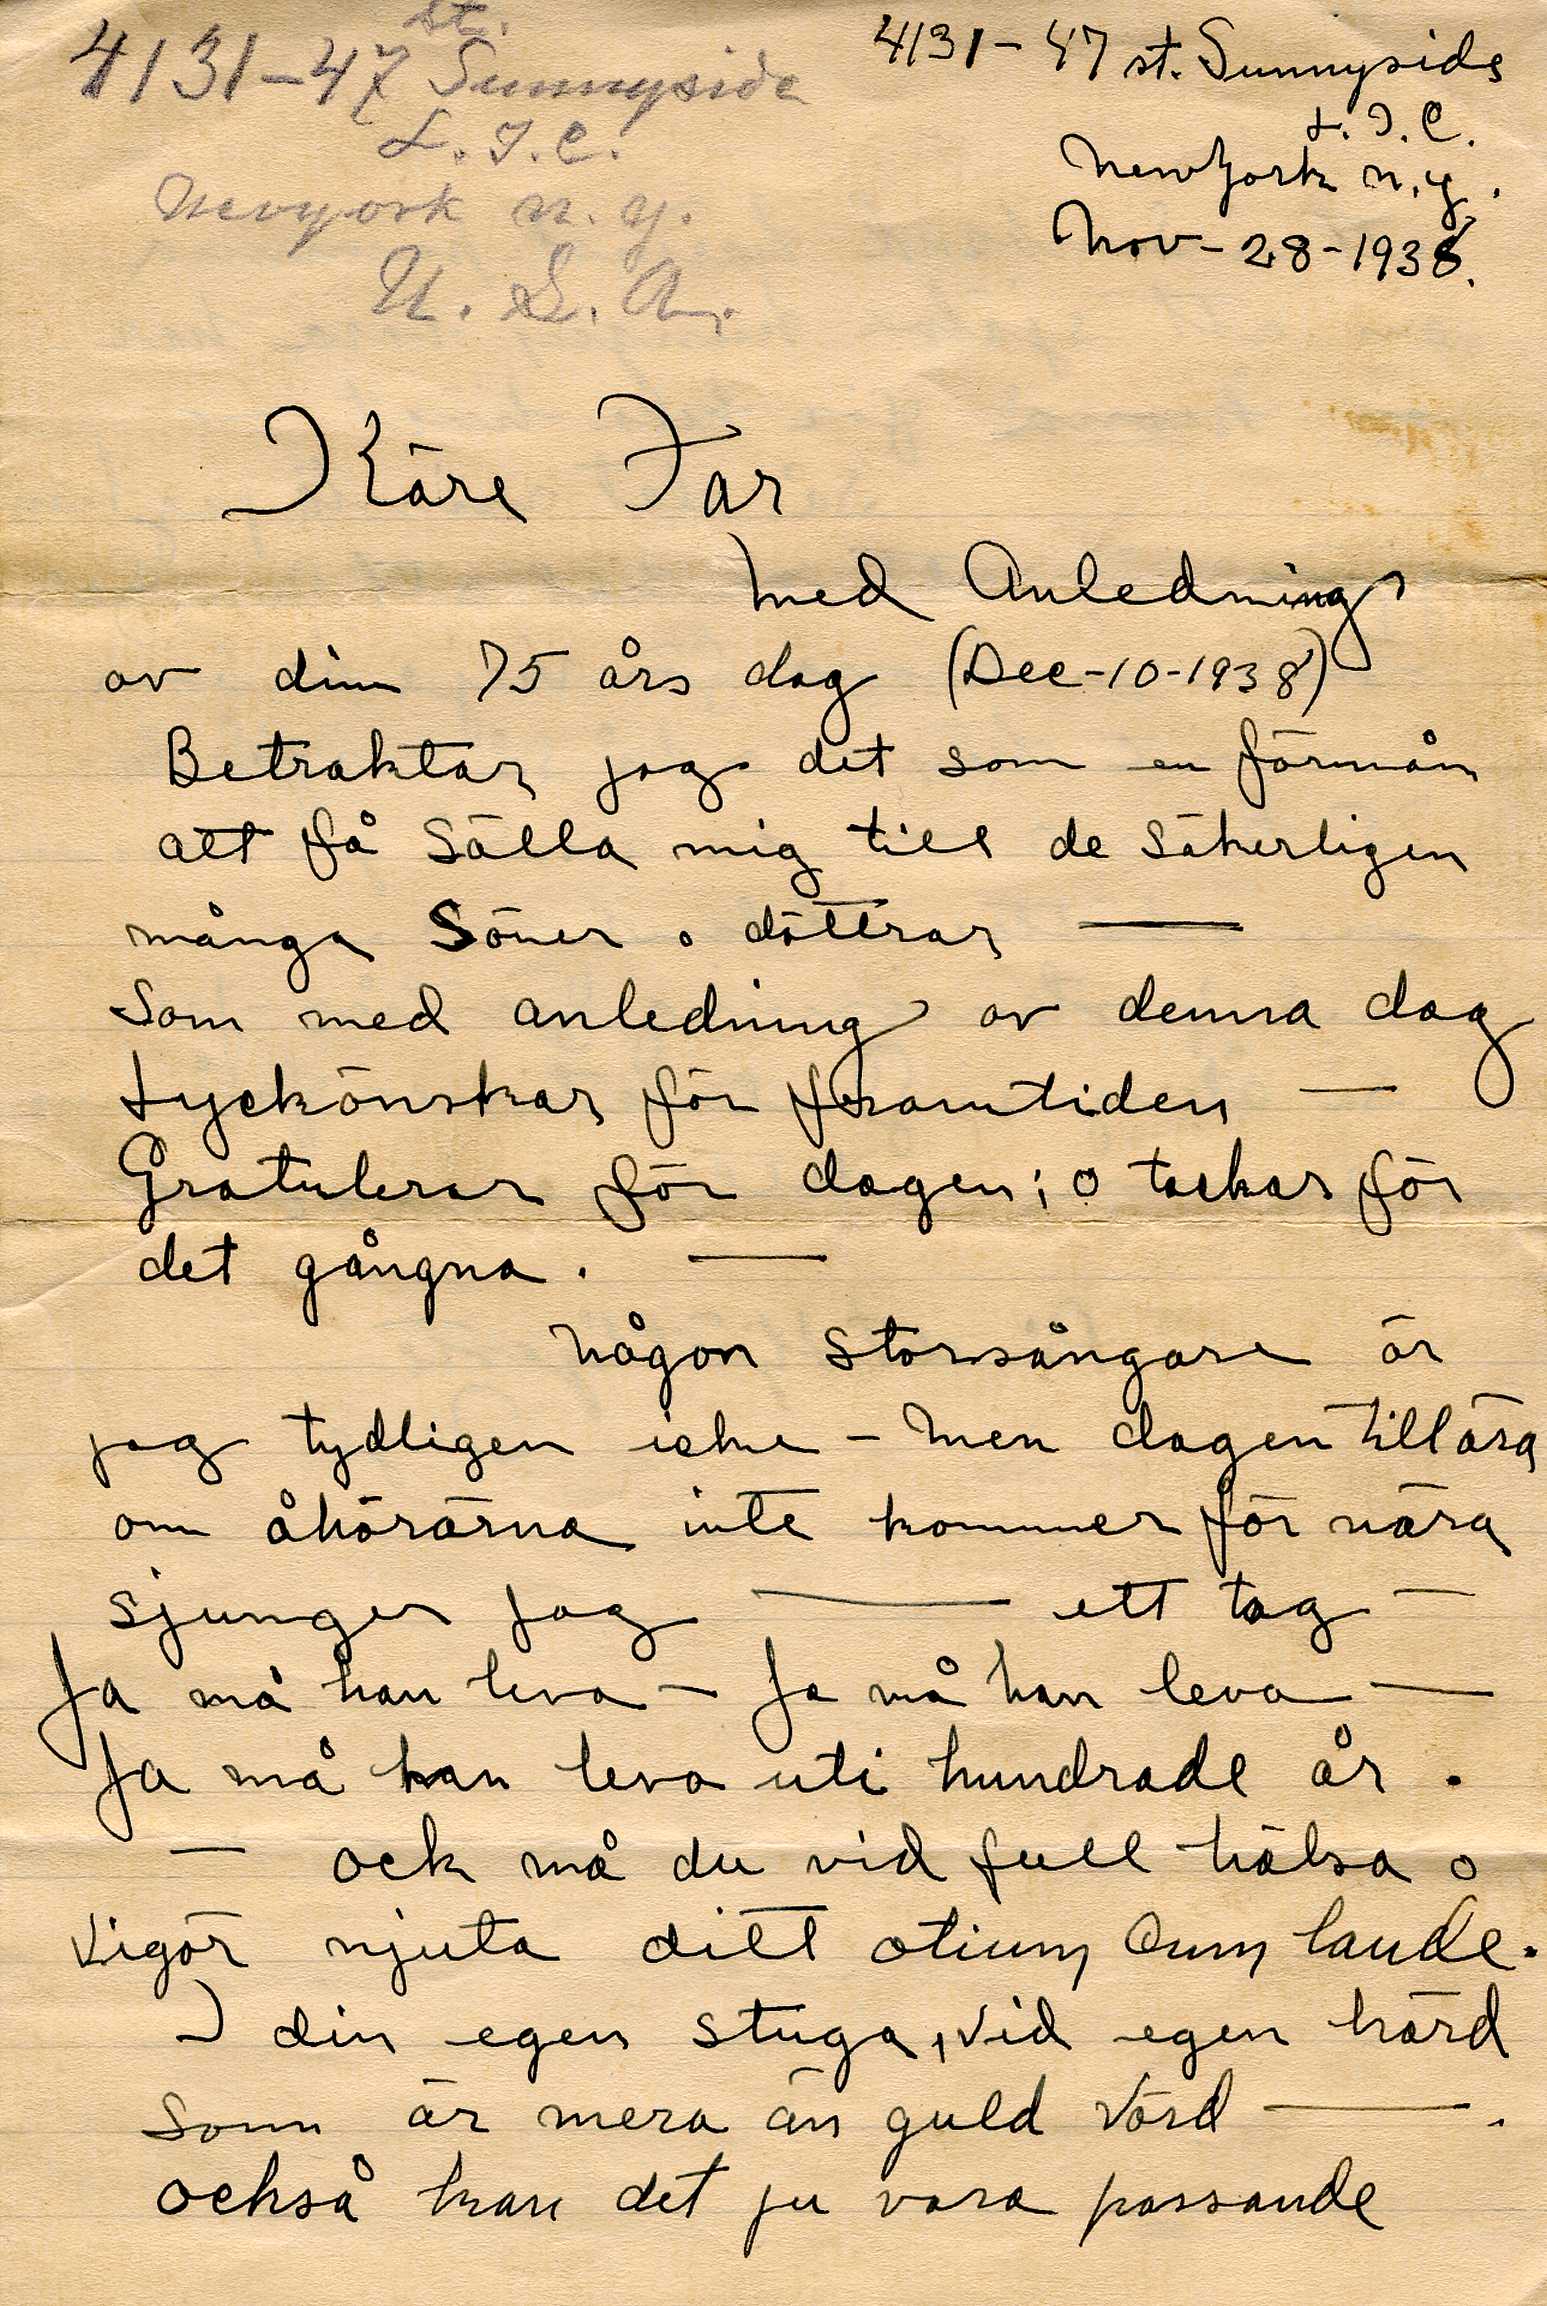 4131-47 st. Sunnyside
L.I.C.
Newyork n.y.
U.S.A.
4131-47 st. Sunnyside
L.I.C.
New York n.y.
Nov-28-1938.
Käre Far
med Anledning
av din 75 års dag (Dec-10-1938)
Betraktar jag det som en förmån
att få Sälla mig till de säkerligen
många Söner o döttrar —
Som med anledning av denna dag
Lyckönskar för framtiden —
Gratulerar för dagen; o tackar för
det gångna. —
någon storsångare är
jag tydligen icke - men dagen till ära
om åhörärna inte kommer för nära
sjunger jag — ett tag —
Ja må han leva — Ja må han leva —
Ja må han leva uti hundrade år.
— ock må du vid full hälsa o
vigör njuta ditt otium Cum laude.
I din egen stuga, vid egen härd
som är mera än guld värd —.
också kan det ju vara passande